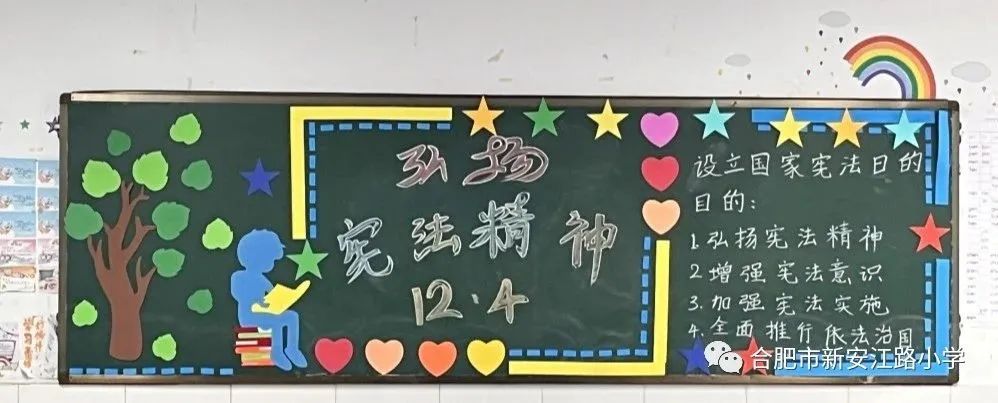 弘扬
宪法精神
12.4
设立国家宪法日的
目的：
1.弘扬宪法精神
2增强宪法意识
3.加强宪法实施
4.全面推行依法治国
合肥市新安江路小学